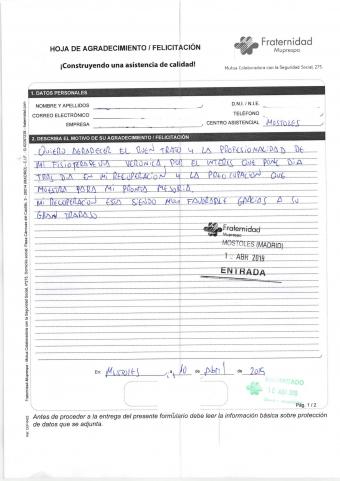 HOJA DE AGRADECIMIENTO / FELICITACIÓN
¡Construyendo una asistencia de calidad!
Fraternidad
Muprespa
Mutua Colaboradora con la Seguridad Social, 275
1. DATOS PERSONALES
NOMBRE Y APELLIDOS
D.N.I. / N.I.E.
CORREO ELECTRÓNICO
TELÉFONO
EMPRESA
CENTRO ASISTENCIAL MOSTOLES
2. DESCRIBA EL MOTIVO DE SU AGRADECIMIENTO / FELICITACIÓN
QUIERO AGRADECER EL BUEN TRATO Y LA PROFESIONALIDAD DE
MI FISIOTERAPEUTA VERONICA, POR EL INTERES QUE PONE DIA
TRAS DIA EN MI RECUPERACION Y LA PREOCUPACION QUE
MUESTRA PARA MI PRONTA MEJORIA.
MI RECUPERACION ESTA SIENDO MUY FAVORABLE GRACIAS A SU
GRAN TRABAJO
Fraternidad
Muprespa
MOSTOLES (MADRID)
ABR 2019
ENTRADA
En MOSTOLES, a 10 de Abril de 2019
10 ABR 2019
Pág. 1 / 2
Antes de proceder a la entrega del presente formulario debe leer la información básica sobre protección
de datos que se adjunta.